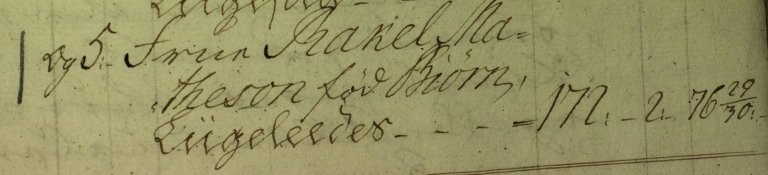 og 5. Frue Rakel Ma=
theson fød Biörn,
Liigeleedes - - - = 172. - 2. - 76 29/30. -